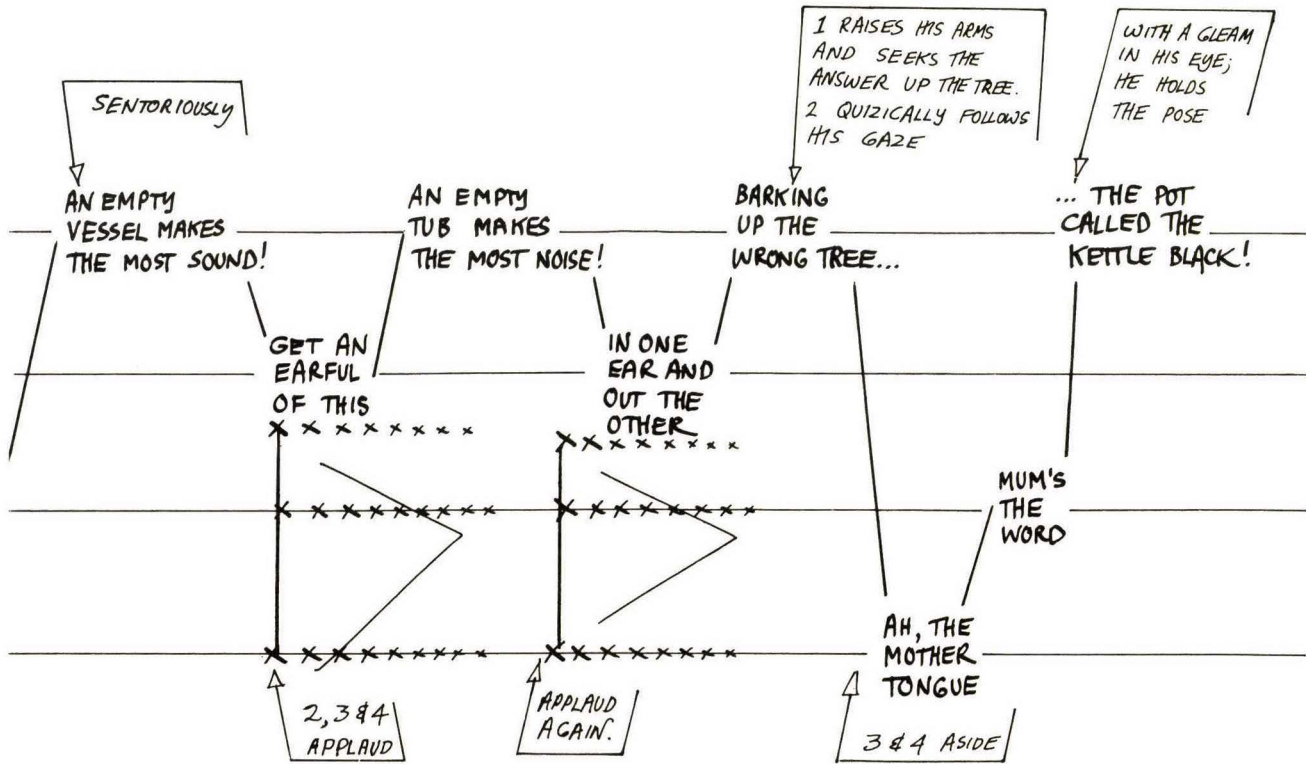 SENTORIOUSLY
AN EMPTY
VESSEL MAKES
THE MOST SOUND!
GET AN
EARFUL
OF THIS
2, 3 & 4
APPLAUD
AN EMPTY
TUB MAKES
THE MOST NOISE!
IN ONE
EAR AND
OUT THE
OTHER
APPLAUD
AGAIN.
1 RAISES HIS ARMS
AND SEEKS THE
ANSWER UP THE TREE.
2 QUIZICALLY FOLLOWS
HIS GAZE
BARKING
UP THE
WRONG TREE...
AH, THE
MOTHER
TONGUE
3 & 4 ASIDE
MUM'S
THE
WORD
WITH A GLEAM
IN HIS EYE;
HE HOLDS
THE POSE
... THE POT
CALLED THE
KETTLE BLACK!